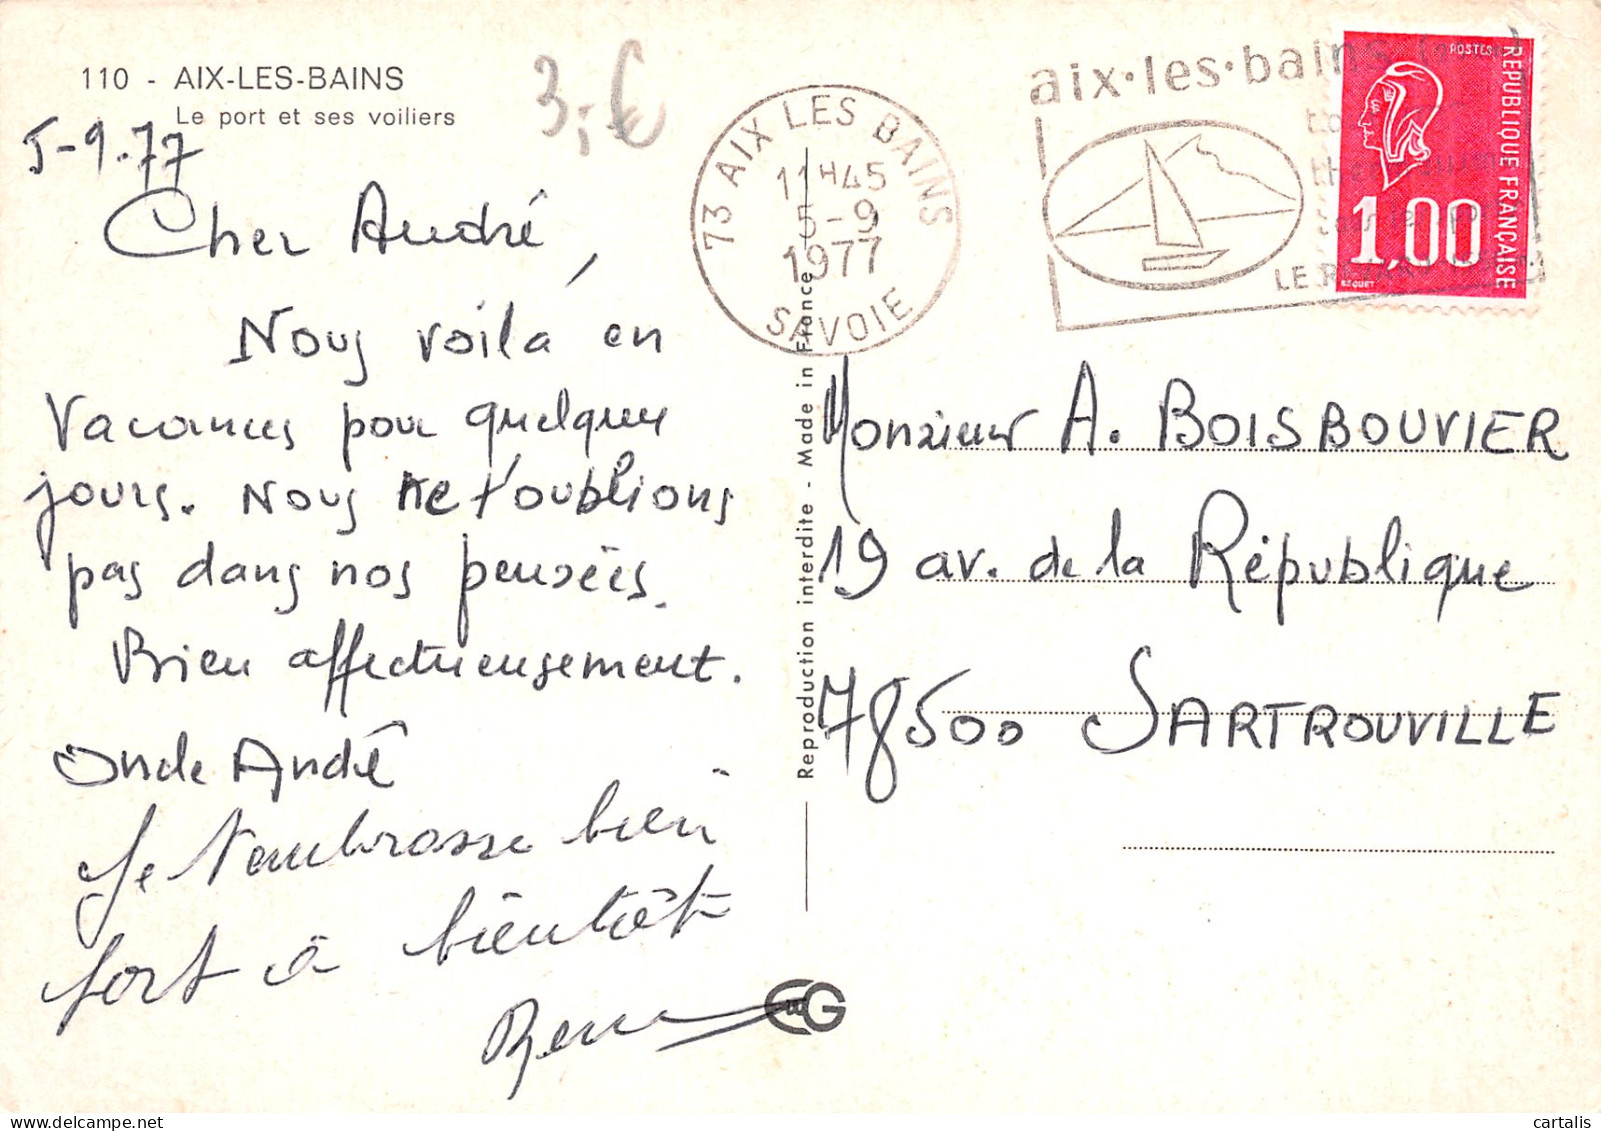 110 - AIX-LES-BAINS
Le port et ses voiliers
3,-€
5-9-77
Cher André,
Nous voilà en
Vacances pour quelques
jours. Nous ne t'oublions
pas dans nos pensées.
Bien affectueusement.
Oncle André
Je t'embrasse bien
fort à bientôt
CG
Reproduction interdite - Made in France
73 AIX LES BAINS
11H45
5-9
1977
SAVOIE
aix•les•bains
LE
POSTES
REPUBLIQUE FRANÇAISE
1,00
BEQUET
Monsieur A. BOISBOUVIER
19 av. de la République
78500 SARTROUVILLE
cartalis
delcampe.net